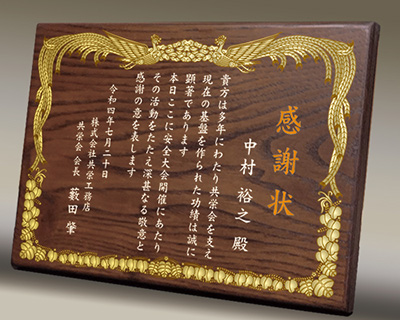 感謝状
中村 裕之 殿
貴方は多年にわたり共栄会を支え
現在の基盤を作られた功績は誠に
顕著であります
本日ここに安全大会開催にあたり
その活動をたたえ深甚なる敬意と
感謝の意を表します
令和四年七月二十日
株式会社共栄工務店
共栄会 会長 薮田 肇